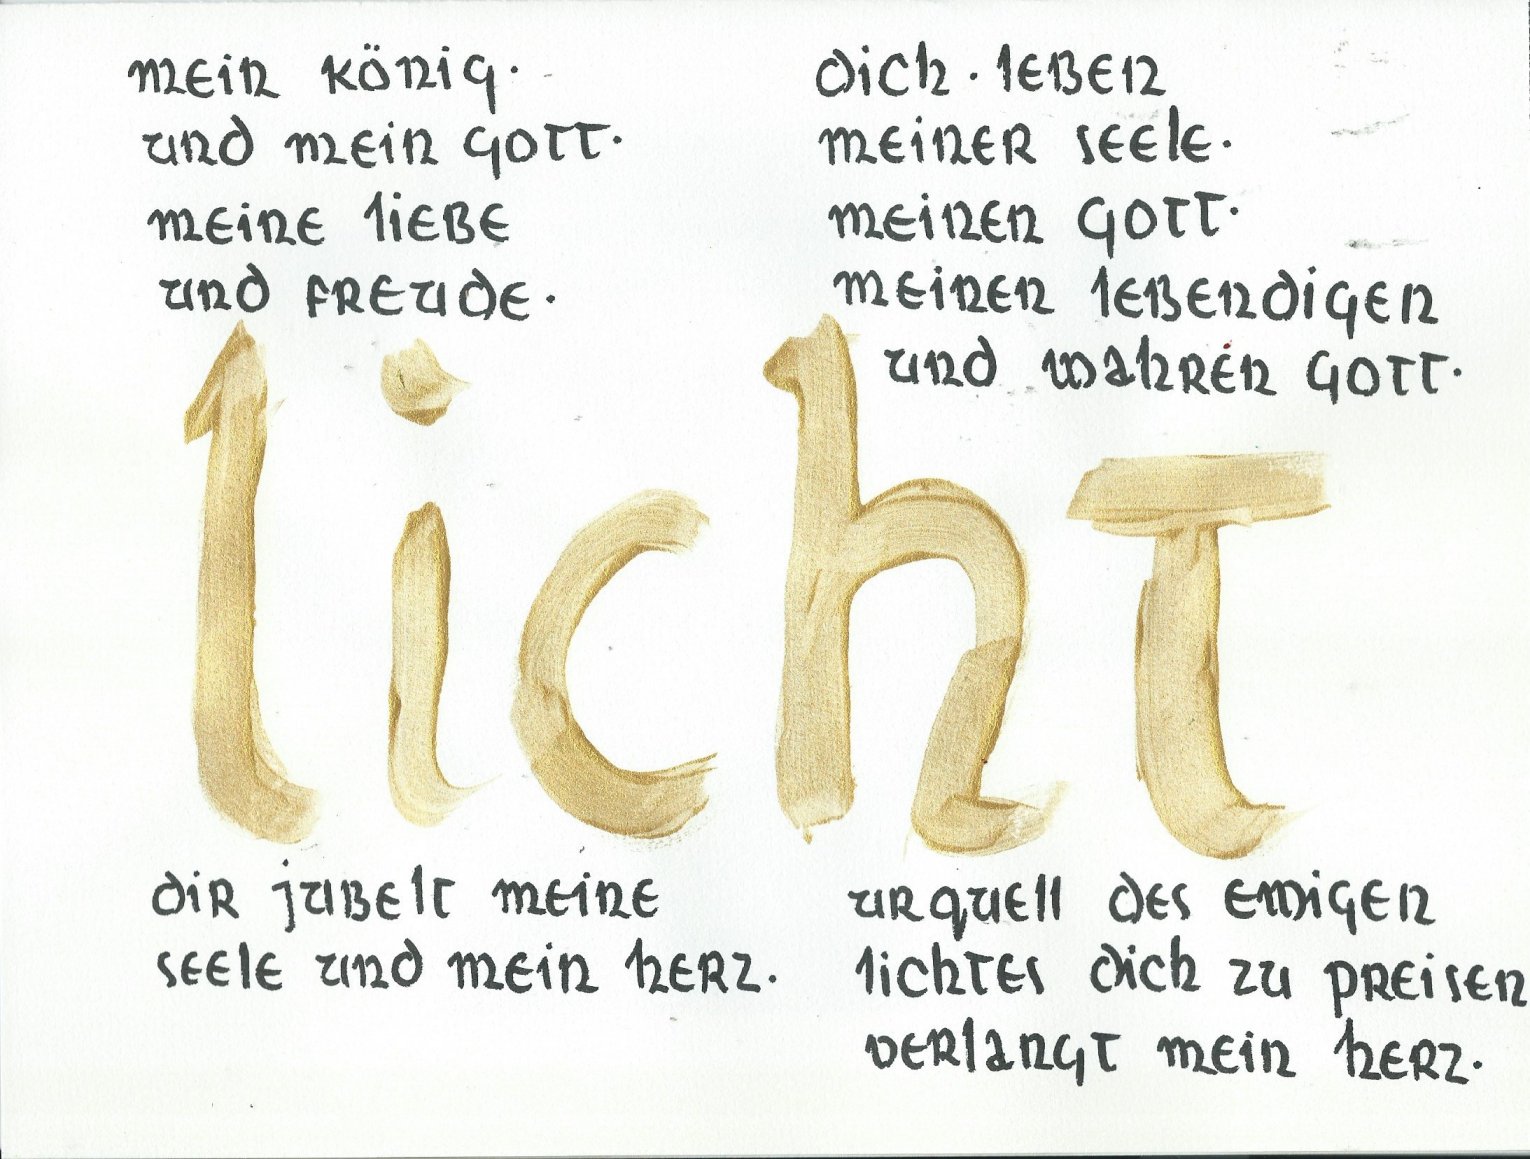 mein könig·
und mein gott·
meine liebe
und freude·
dich · leben
meiner seele·
meinen gott·
meinen lebendigen
und wahren gott·
licht
dir jubelt meine
seele und mein herz·
urquell des ewigen
lichtes dich zu preisen
verlangt mein herz·